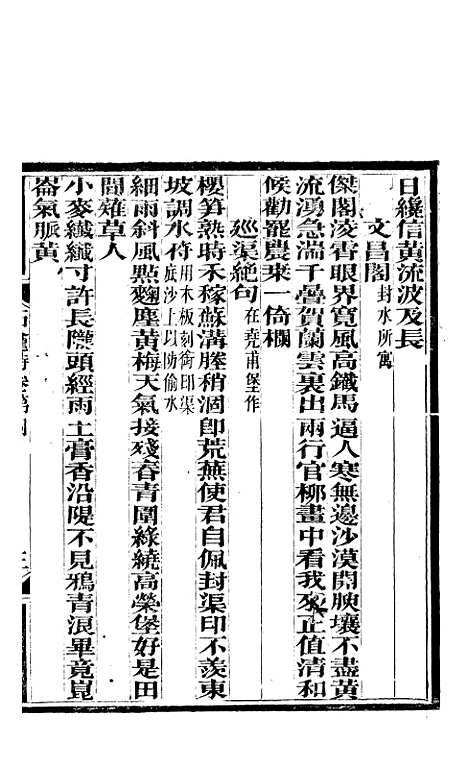 日纔信黃流波及長
文昌閣封水所寓
傑閣淩霄眼界寬風高鐵馬逼人寒無邊沙漠開腴壤不盡黃
流湧急湍千疊賀蘭雲裏出兩行官柳畫中看我來正值清和
候勸罷農耒一倚欄
廵渠絕句在堯甫堡作
櫻笋熟時禾稼蘇溝塍稍涸卽荒蕪使君自佩封渠印不羨東
坡調水符用木板刻銜印渠底沙上以防偷水
細雨斜風點麴塵黃梅天氣接殘春青圍綠繞高榮堡好是田
間薙草人
小麥纖纖寸許長隴頭經雨土膏香沿隄不見鴉青浪畢竟崑
崙氣脈黃